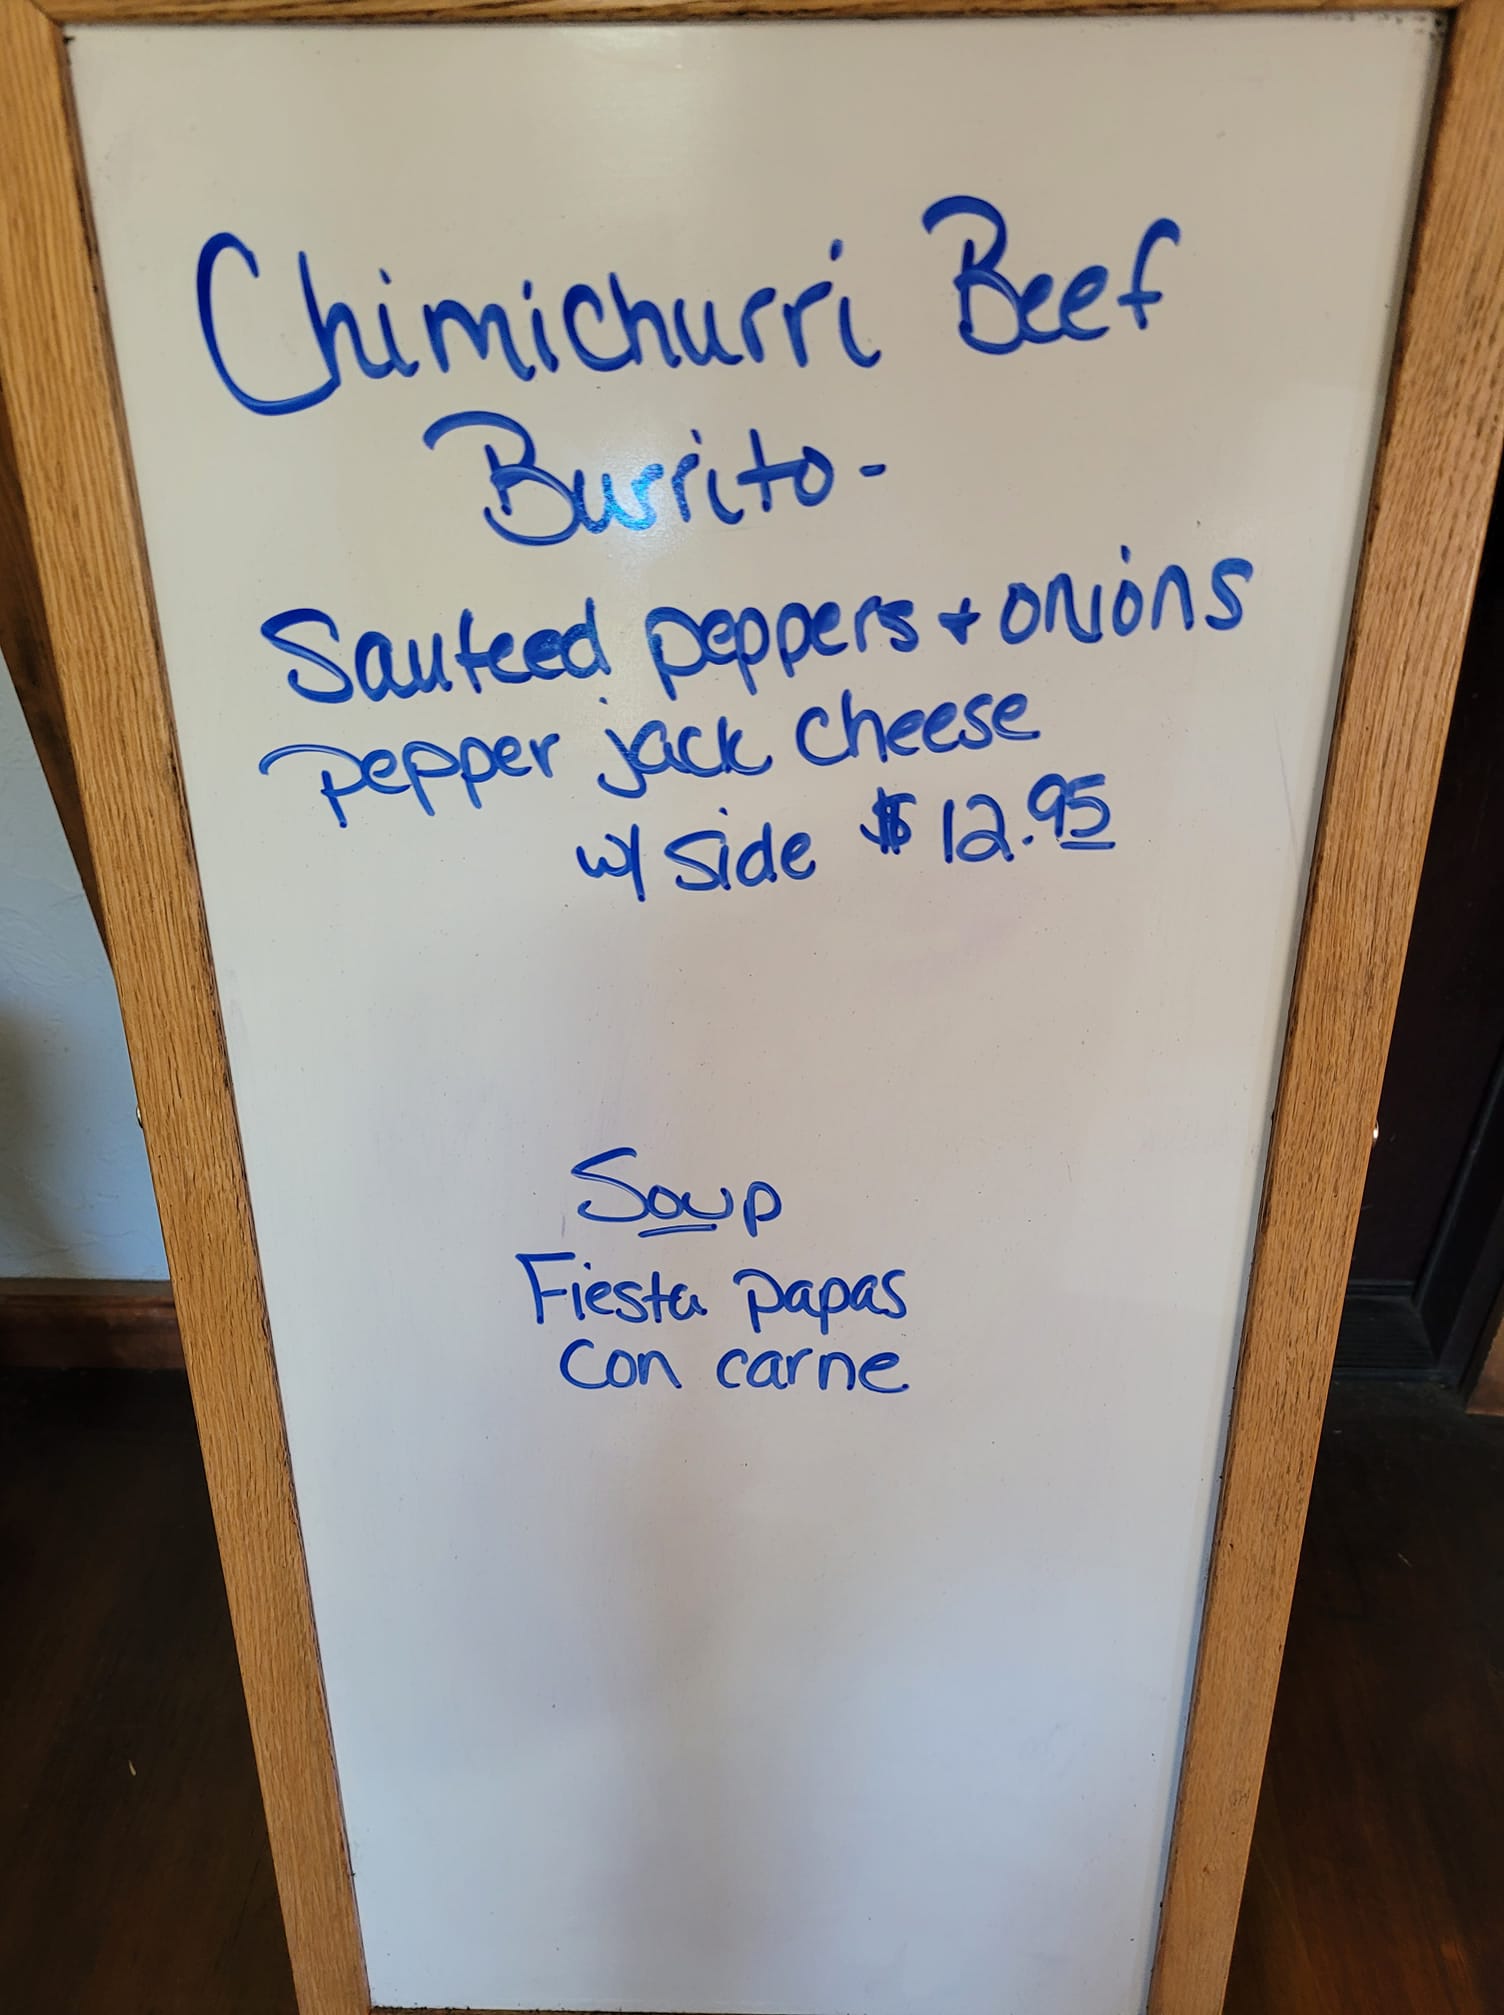 Chimichurri Beef
Burrito-
Sauteed peppers + onions
pepper jack cheese
w/ side $12.95
Soup
Fiesta papas
con carne